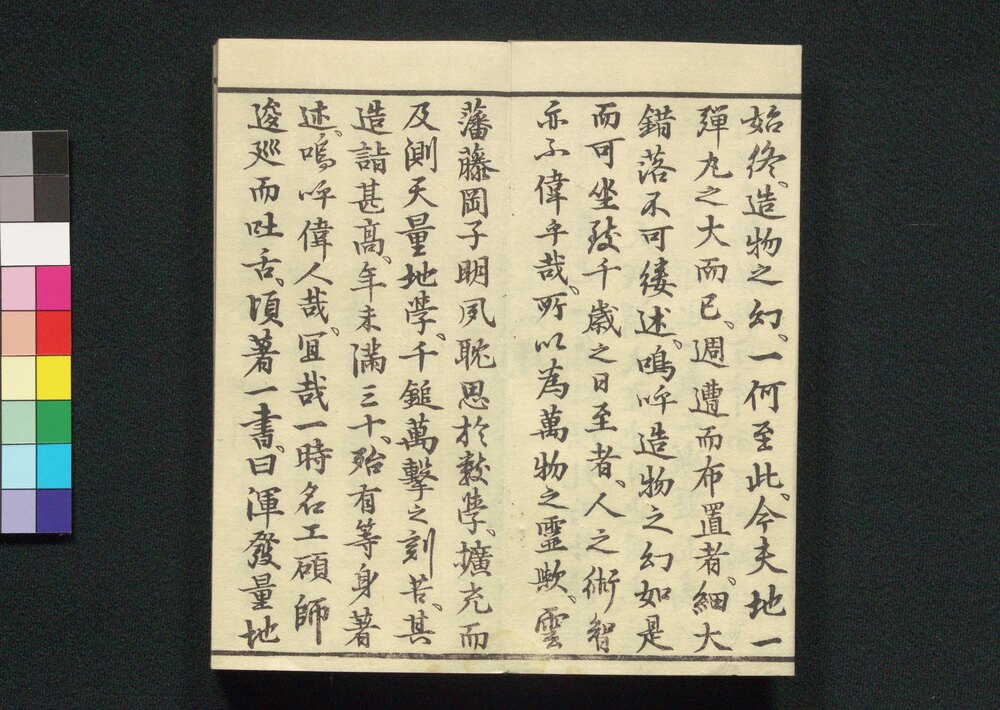 始終、造物之幻、一何至此、今夫地一
彈丸之大而已、週遭而布置者、細大
錯落不可縷述、嗚呼造物之幻如是
而可坐致千歳之日至者、人之術智
亦不偉乎哉、所以為萬物之靈歟、雲
藩藤岡子明夙耽思於數學、擴充而
及測天量地學、千鎚萬擊之刻苦、其
造詣甚高、年未滿三十、殆有等身著
述、嗚呼偉人哉、宜哉一時名工碩師
逡巡而吐舌、頃著一書、曰渾發量地